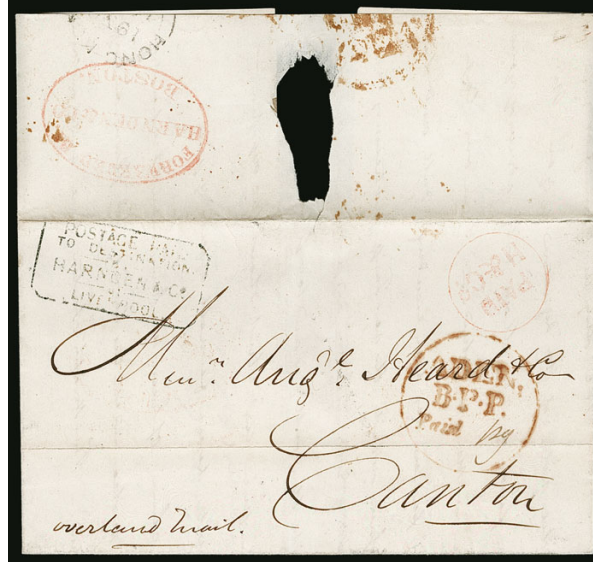 HONG
19
FORWARDED BY
HARNDEN & Co
BOSTON.
POSTAGE PAID
TO DESTINATION.
BY
HARNDEN & Co
LIVERPOOL
PAID
Messrs. Augt. Heard & Co
ADEN,
B.P.P.
Paid
Canton
overland mail.